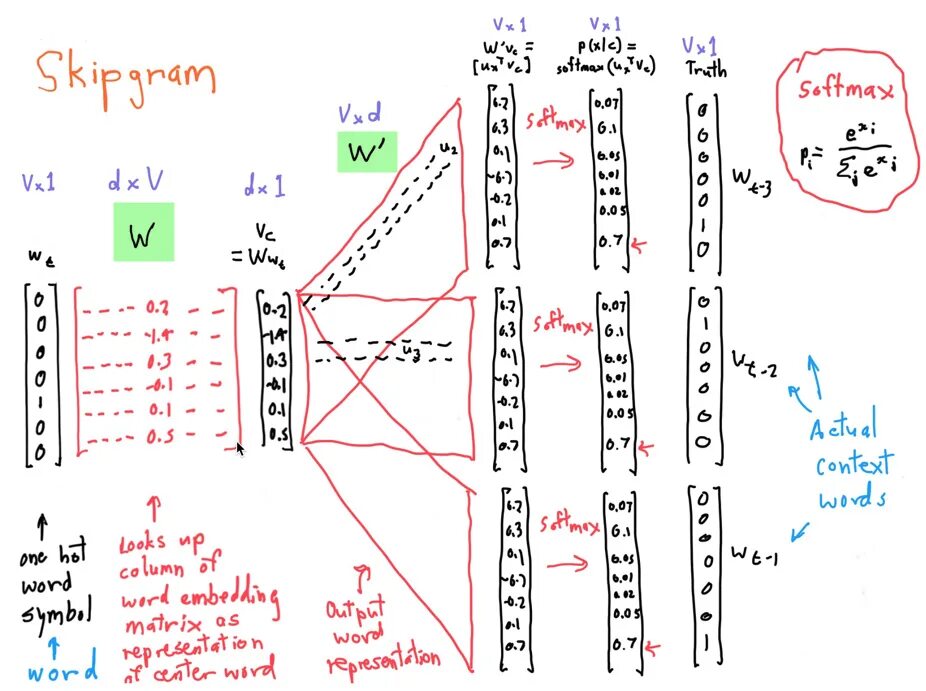 Skipgram
V×1
w_t
[0 0 0 0 1 0 0]
d×V
W
---- 0.2 - -
---- -1.4 - -
--- 0.3 - -
--- -0.1 - -
--- 0.1 - -
--- 0.5 - -
d×1
V_c
= Ww_t
[0.2 -1.4 0.3 -0.1 0.1 0.5]
V×d
W'
u_2
u_3
V×1
W'v_c =
[u_x^T v_c]
V×1
p(x|c) =
softmax(u_x^T v_c)
V×1
Truth
softmax
p_i = e^{x_i} / Σ_j e^{x_j}
0.3
0.1
-0.2
0.1
0.7
softmax
→
0.07
0.1
0.05
0.01
0.02
0.05
0.7 ←
[0 0 0 0 0 1 0]
w_{t-3}
0.3
0.1
-0.2
0.1
0.7
softmax
→
0.07
0.1
0.05
0.01
0.02
0.05
0.7 ←
[0 1 0 0 0 0 0]
w_{t-2}
0.3
0.1
-0.2
0.1
0.7
softmax
→
0.07
0.1
0.05
0.01
0.02
0.05
0.7 ←
[0 0 0 0 0 0 1]
w_{t-1}
Actual
context
words
one hot
word
symbol
word
Looks up
column of
word embedding
matrix as
representation
of center word
Output
word
representation